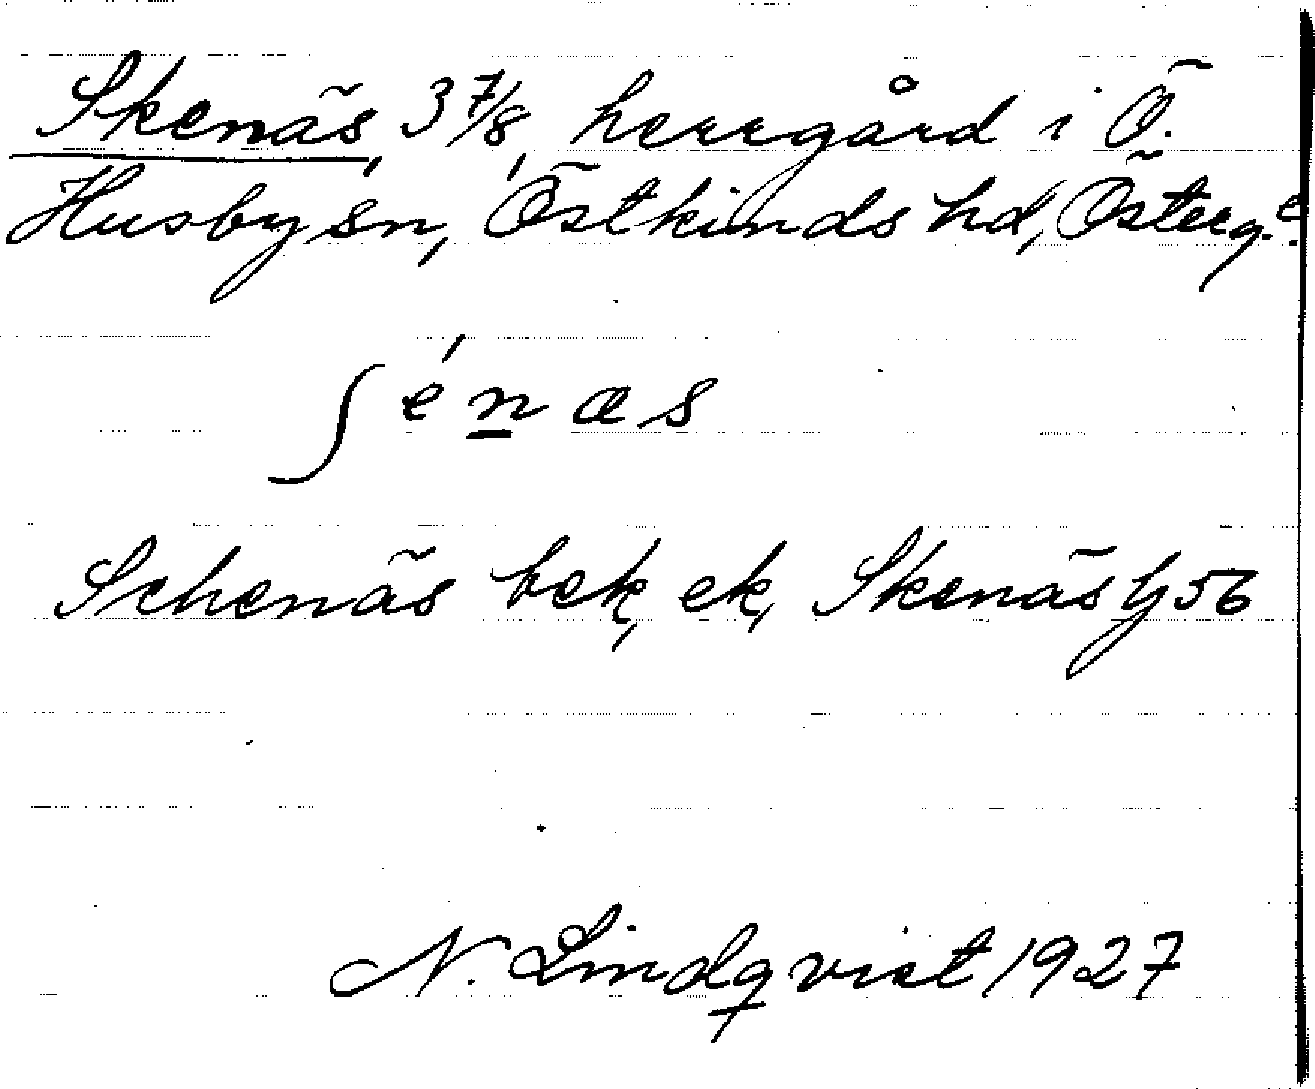 Skenäs, 3 7/8, herrgård i Ö.
Husby sn, Östkinds hd, Österg.
ʃénas
Schenäs bek, ek, Skenäs Jj 56
N. Lindqvist 1927